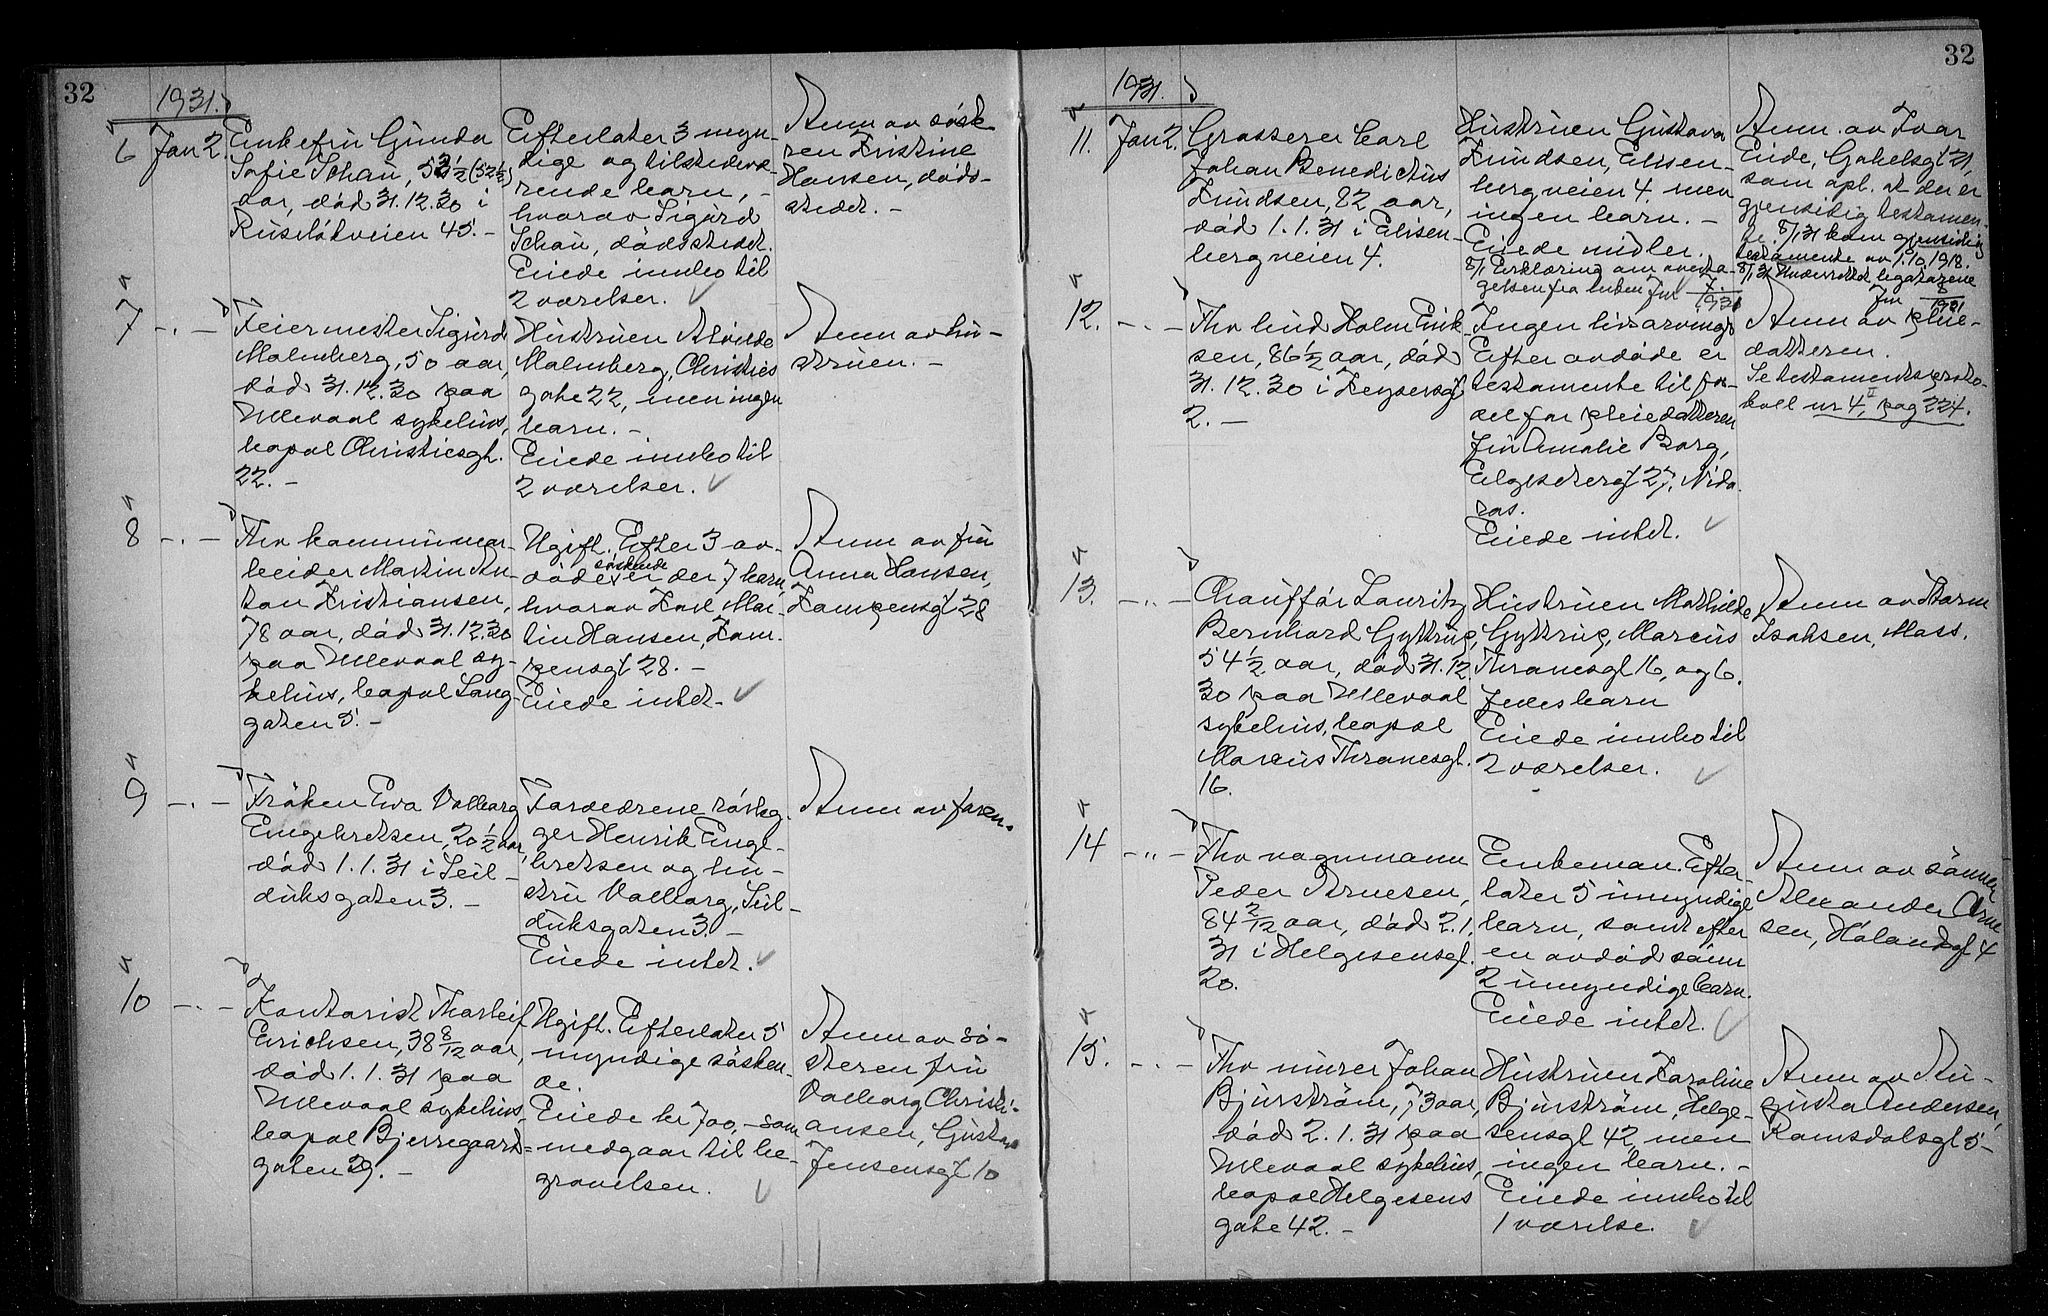 32
1931.
6 Jan 2. Enkefru Gunda
Sofie Schau, 53½ (52½)
aar, död 31.12.30 i
Ruselökveien 45. -
Efterlater 3 myn-
dige og tilstedevæ-
rende barn, -
hvorav Sigurd
Schau, dödsstedet.
Eiede innbo til
2 værelser.
Anm av søste
ren Kristine
Hansen, döds-
stedet. -
7 -.- Feiermester Sigurd
Malmberg, 50 aar,
död 31.12.30 paa
Ullevaal sykehus,
bopæl Christiesgt.
22. -
Hustruen Alvilde
Malmberg, Christies
gate 22, men ingen
barn. -
Eiede innbo til
2 værelser.
Anm av hu-
struen. -
8 -.- Fhv kommunear-
beider Martin An-
ton Kristiansen,
78 aar, död 31.12.30
paa Ullevaal sy-
kehus, bopæl Lang-
gaten 5. -
Ugift. Efter 3 av-
döde søskende er der 7 barn,
hvorav Karl Mar-
tin Hansen, Kam-
pensgt 28. -
Eiede intet. -
Anm av fru
Anna Hansen,
Kampensgt 28
9 -.- Fröken Eva Valborg
Engebretsen, 20½ aar,
död 1.1.31 i Seil-
duksgaten 3. -
Forældrene rörleg-
ger Henrik Enge-
bretsen og hu-
stru Valborg, Seil-
duksgaten 3. -
Eiede intet.
Anm av faren.
10 -.- Kontorist Thorleif
Erichsen, 38 8/12 aar,
död 1.1.31 paa
Ullevaal sykehus,
bopæl Bjerregaard-
gaten 29. -
Ugift. Efterlater 5
myndige sösken-
de.
Eiede kr 700,- som
medgaar til be-
gravelsen.
Anm av sö-
steren fru
Valborg Christi-
ansen, Gustav
Jensensgt 10
32
1931.
11. Jan 2. Grosserer Carl
Johan Benedictus
Knudsen, 82 aar,
död 1.1.31 i Elisen-
bergveien 4.
Hustruen Gustava
Knudsen, Elisen-
bergveien 4. men
ingen barn. -
Eiede midler.
8/1 Erklæring om overta-
gelsen fra enken Jnr 7/1931
Anm. av Ivar
Eide, Gabelsgt 21,
som opl. at der er
gjensidig testamen-
te. 8/1 31 kom gjensidig
testamente av 1.10.1918.
8/1 31 Underrettet legatarene
Jnr 8/1931
12. -.- Fhv bud Holm Erik
sen, 86½ aar, död
31.12.30 i Keysersgt
2. -
Ingen livsarvinger
Efter avdöde er
testamente til for-
del for pleiedatteren
fru Amalie Borg,
Elgesetergt 27, Nida-
ros.
Eiede intet.
Anm av pleie-
datteren.
Se testamentsproto-
koll nr 4, pag 224.
13. -.- Chaufför Lauritz
Bernhard Gyttrup,
54½ aar, död 31.12.
30 paa Ullevaal
sykehus, bopæl
Marcus Thranesgt.
16.
Hustruen Mathilde
Gyttrup, Marcus
Thranesgt 16, og 6.
felles barn
Eiede innbo til
2 værelser.
Anm av Thorm
Isaksen, Moss.
14 -.- Fhv vognmann
Peder Arnesen,
84 2/12 aar, död 2.1.
31 i Helgesensgt.
20.
Enkeman. Efter
later 5 umyndige
barn, samt efter
en avdöd sönn
2 umyndige barn.
Eiede intet.
Anm av sönnen
Alexander Arne
sen, Hölandsgt 4
15. -.- Fhv murer Johan
Bjurström, 73 aar,
död 2.1.31 paa
Ullevaal sykehus,
bopæl Helgesens
gate 42. -
Hustruen Karoline
Bjurström, Helge-
sensgt 42, men
ingen barn. -
Eiede innbo til
1 værelse.
Anm av Au-
gusta Andersen,
Ramsdalsgt 5 -